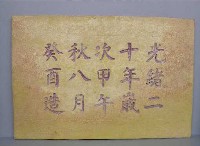 光緒二
十年歲
次甲午
秋八月
癸酉造